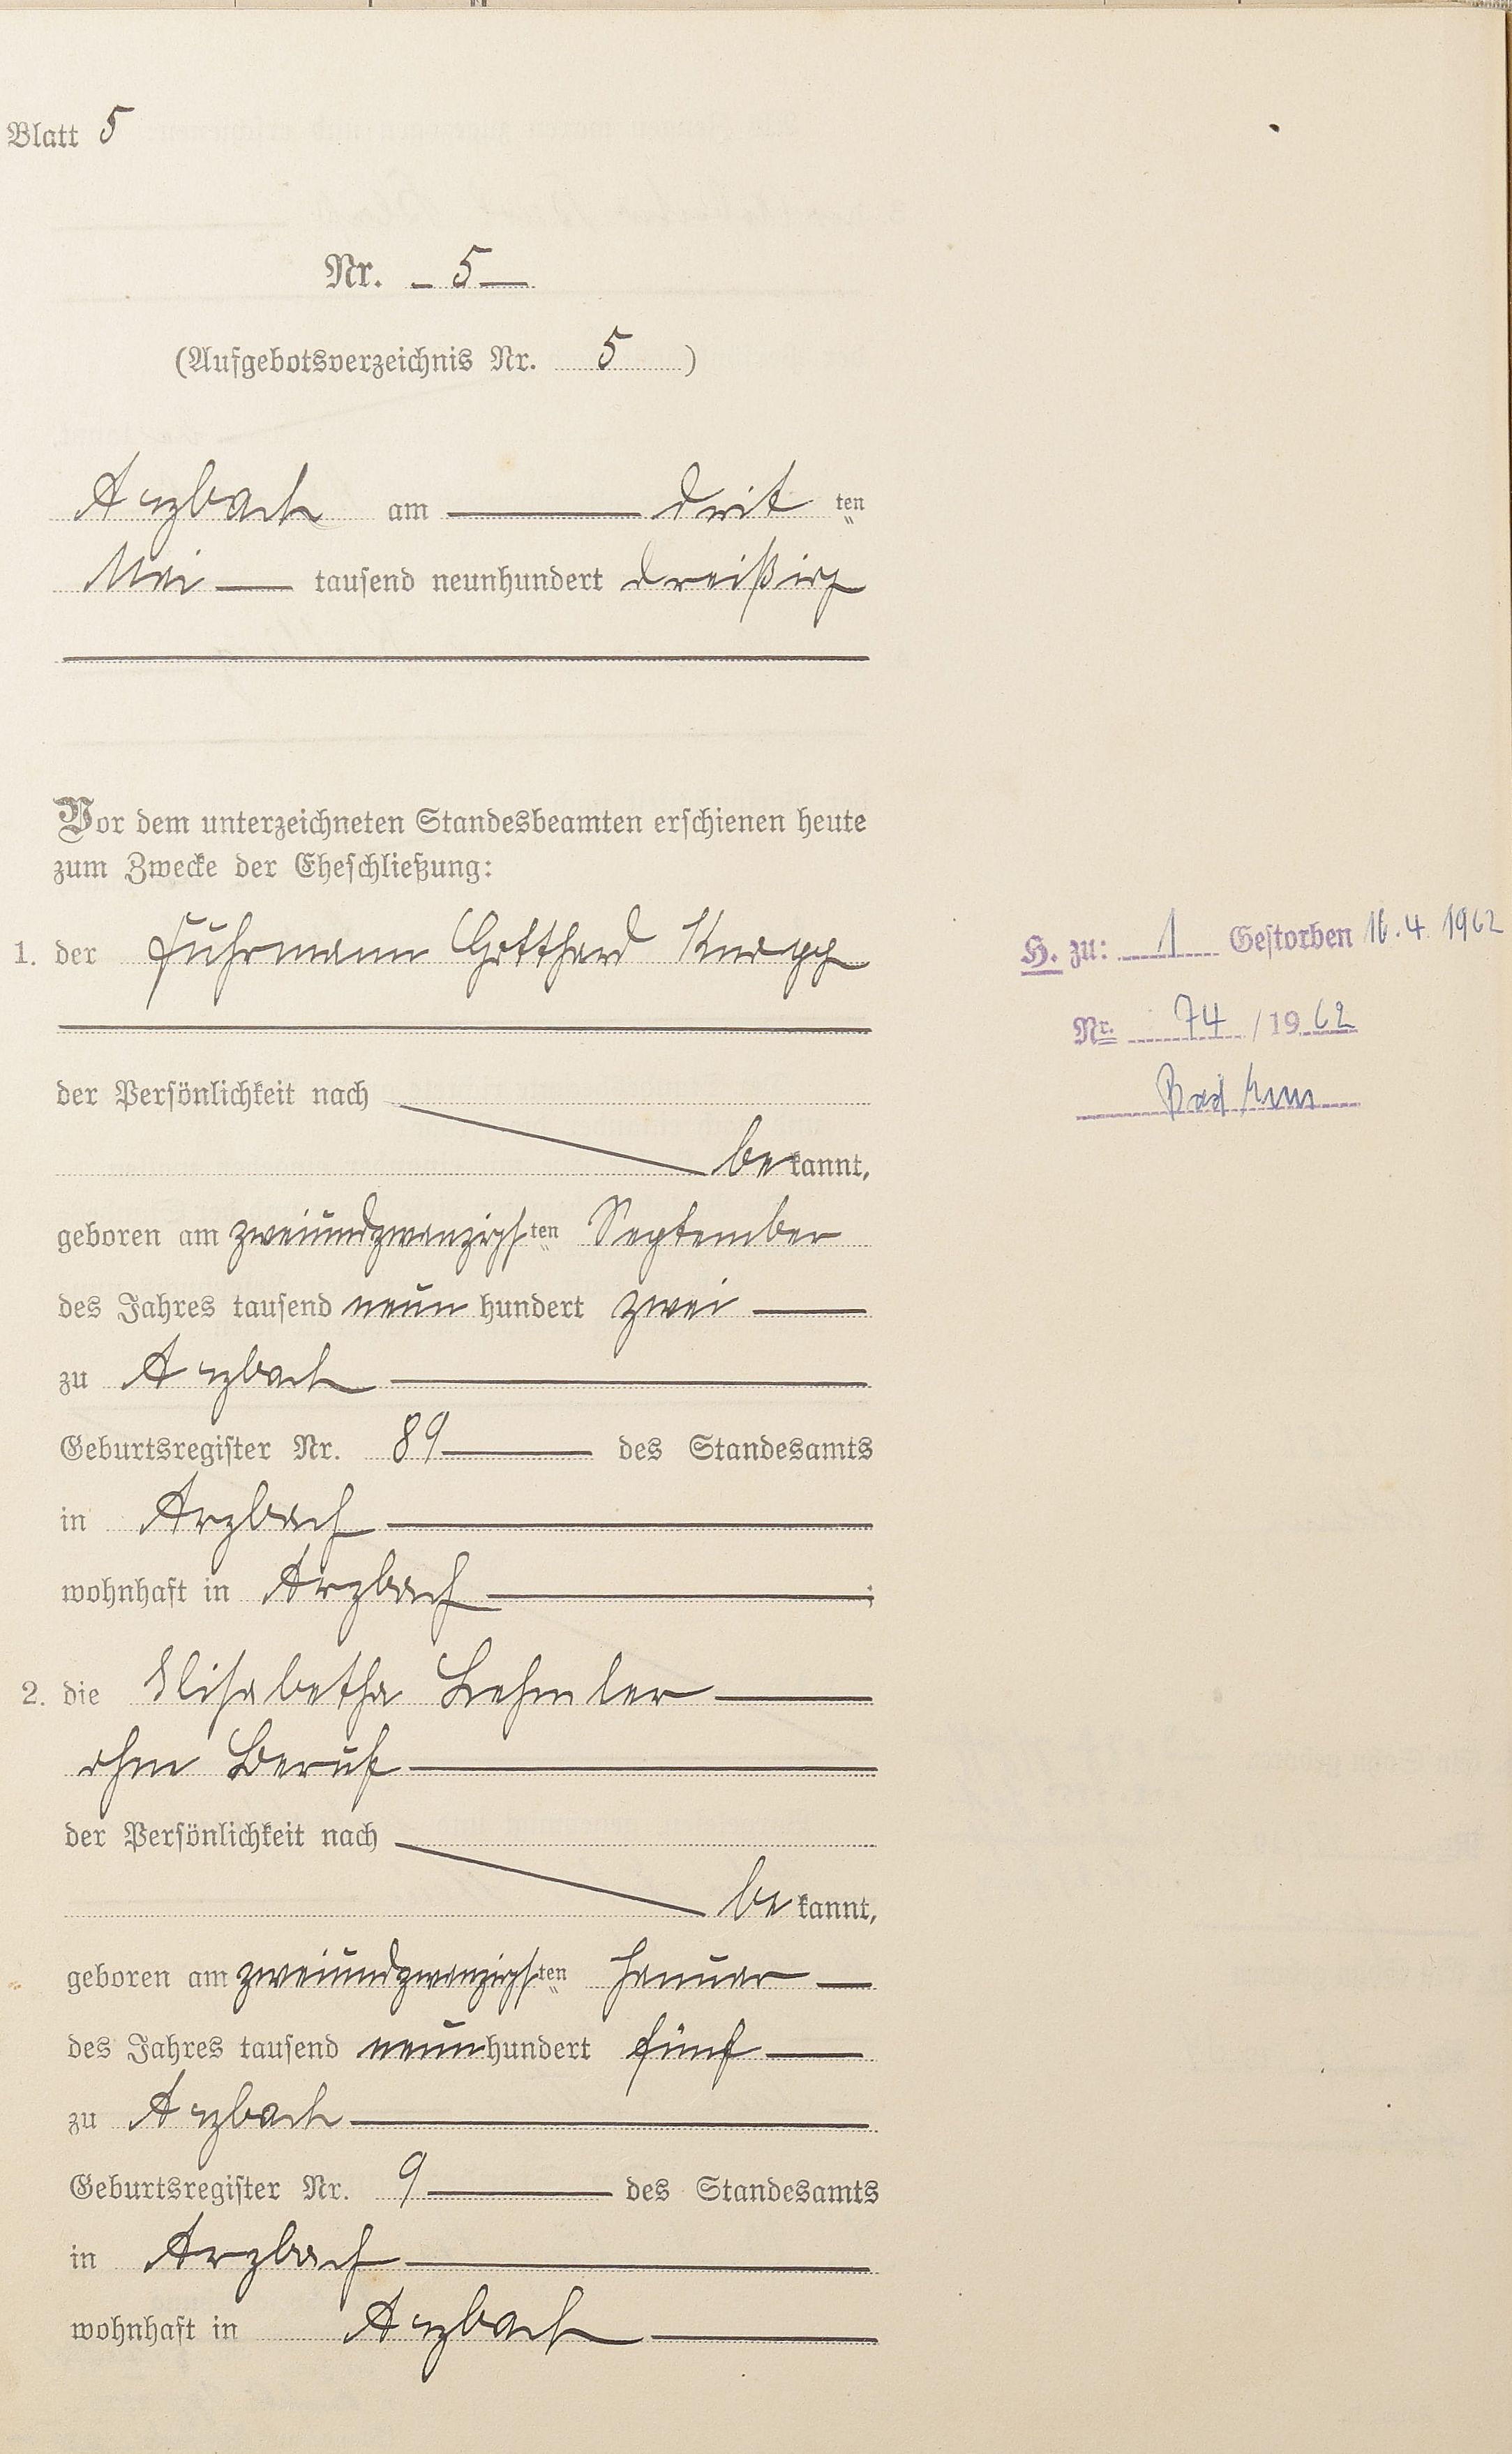 Blatt 5
Nr. 5
(Aufgebotsverzeichnis Nr. 5)
Arzbach am drit ten
Mai tausend neunhundert dreißig
Vor dem unterzeichneten Standesbeamten erschienen heute
zum Zwecke der Eheschließung:
1. der Fuhrmann Gotthard Knapp
der Persönlichkeit nach
be kannt,
geboren am zweiundzwanzigsten September
des Jahres tausend neun hundert zwei
zu Arzbach
Geburtsregister Nr. 89 des Standesamts
in Arzbach
wohnhaft in Arzbach;
2. die Elisabetha Lehmler
ohne Beruf
der Persönlichkeit nach
be kannt,
geboren am zweiundzwanzigsten Januar
des Jahres tausend neun hundert fünf
zu Arzbach
Geburtsregister Nr. 9 des Standesamts
in Arzbach
wohnhaft in Arzbach
H. zu: 1 Gestorben 16.4.1962
Nr. 74 / 1962
Bad Ems